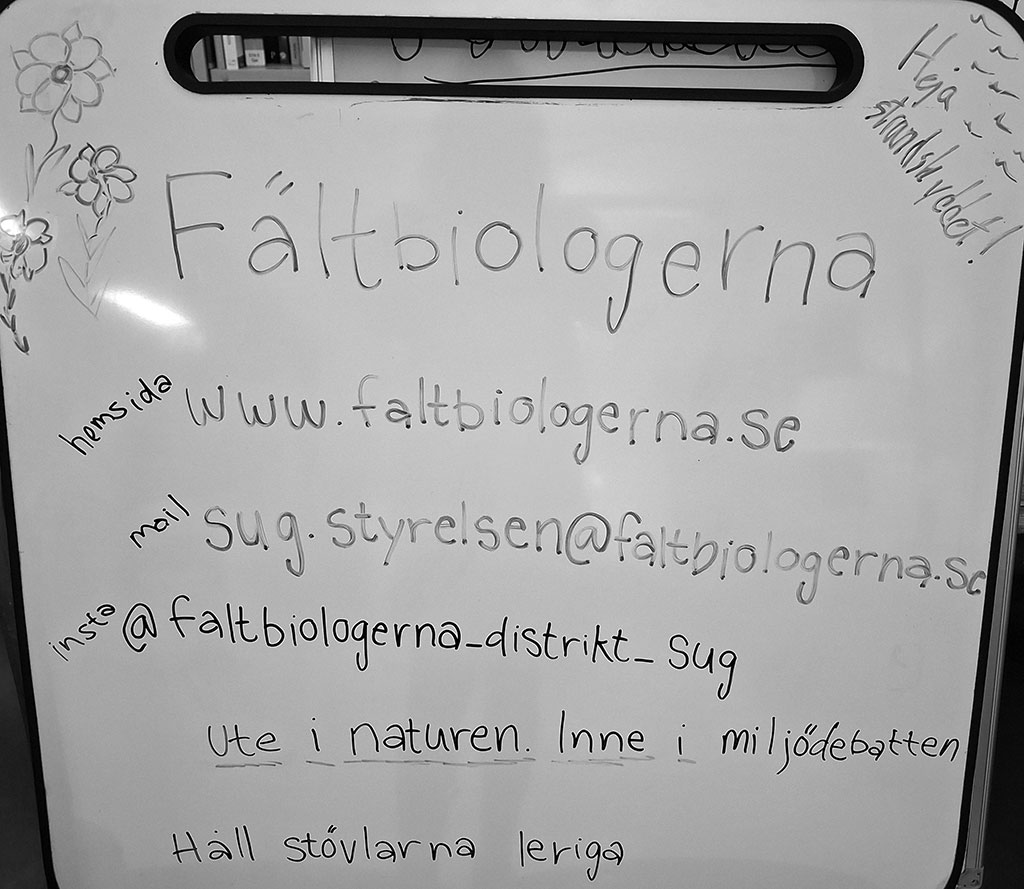 Heja
strandskyddet!
Fältbiologerna
hemsida www.faltbiologerna.se
mail sug.styrelsen@faltbiologerna.se
insta @faltbiologerna_distrikt_sug
Ute i naturen. Inne i miljödebatten
Håll stövlarna leriga